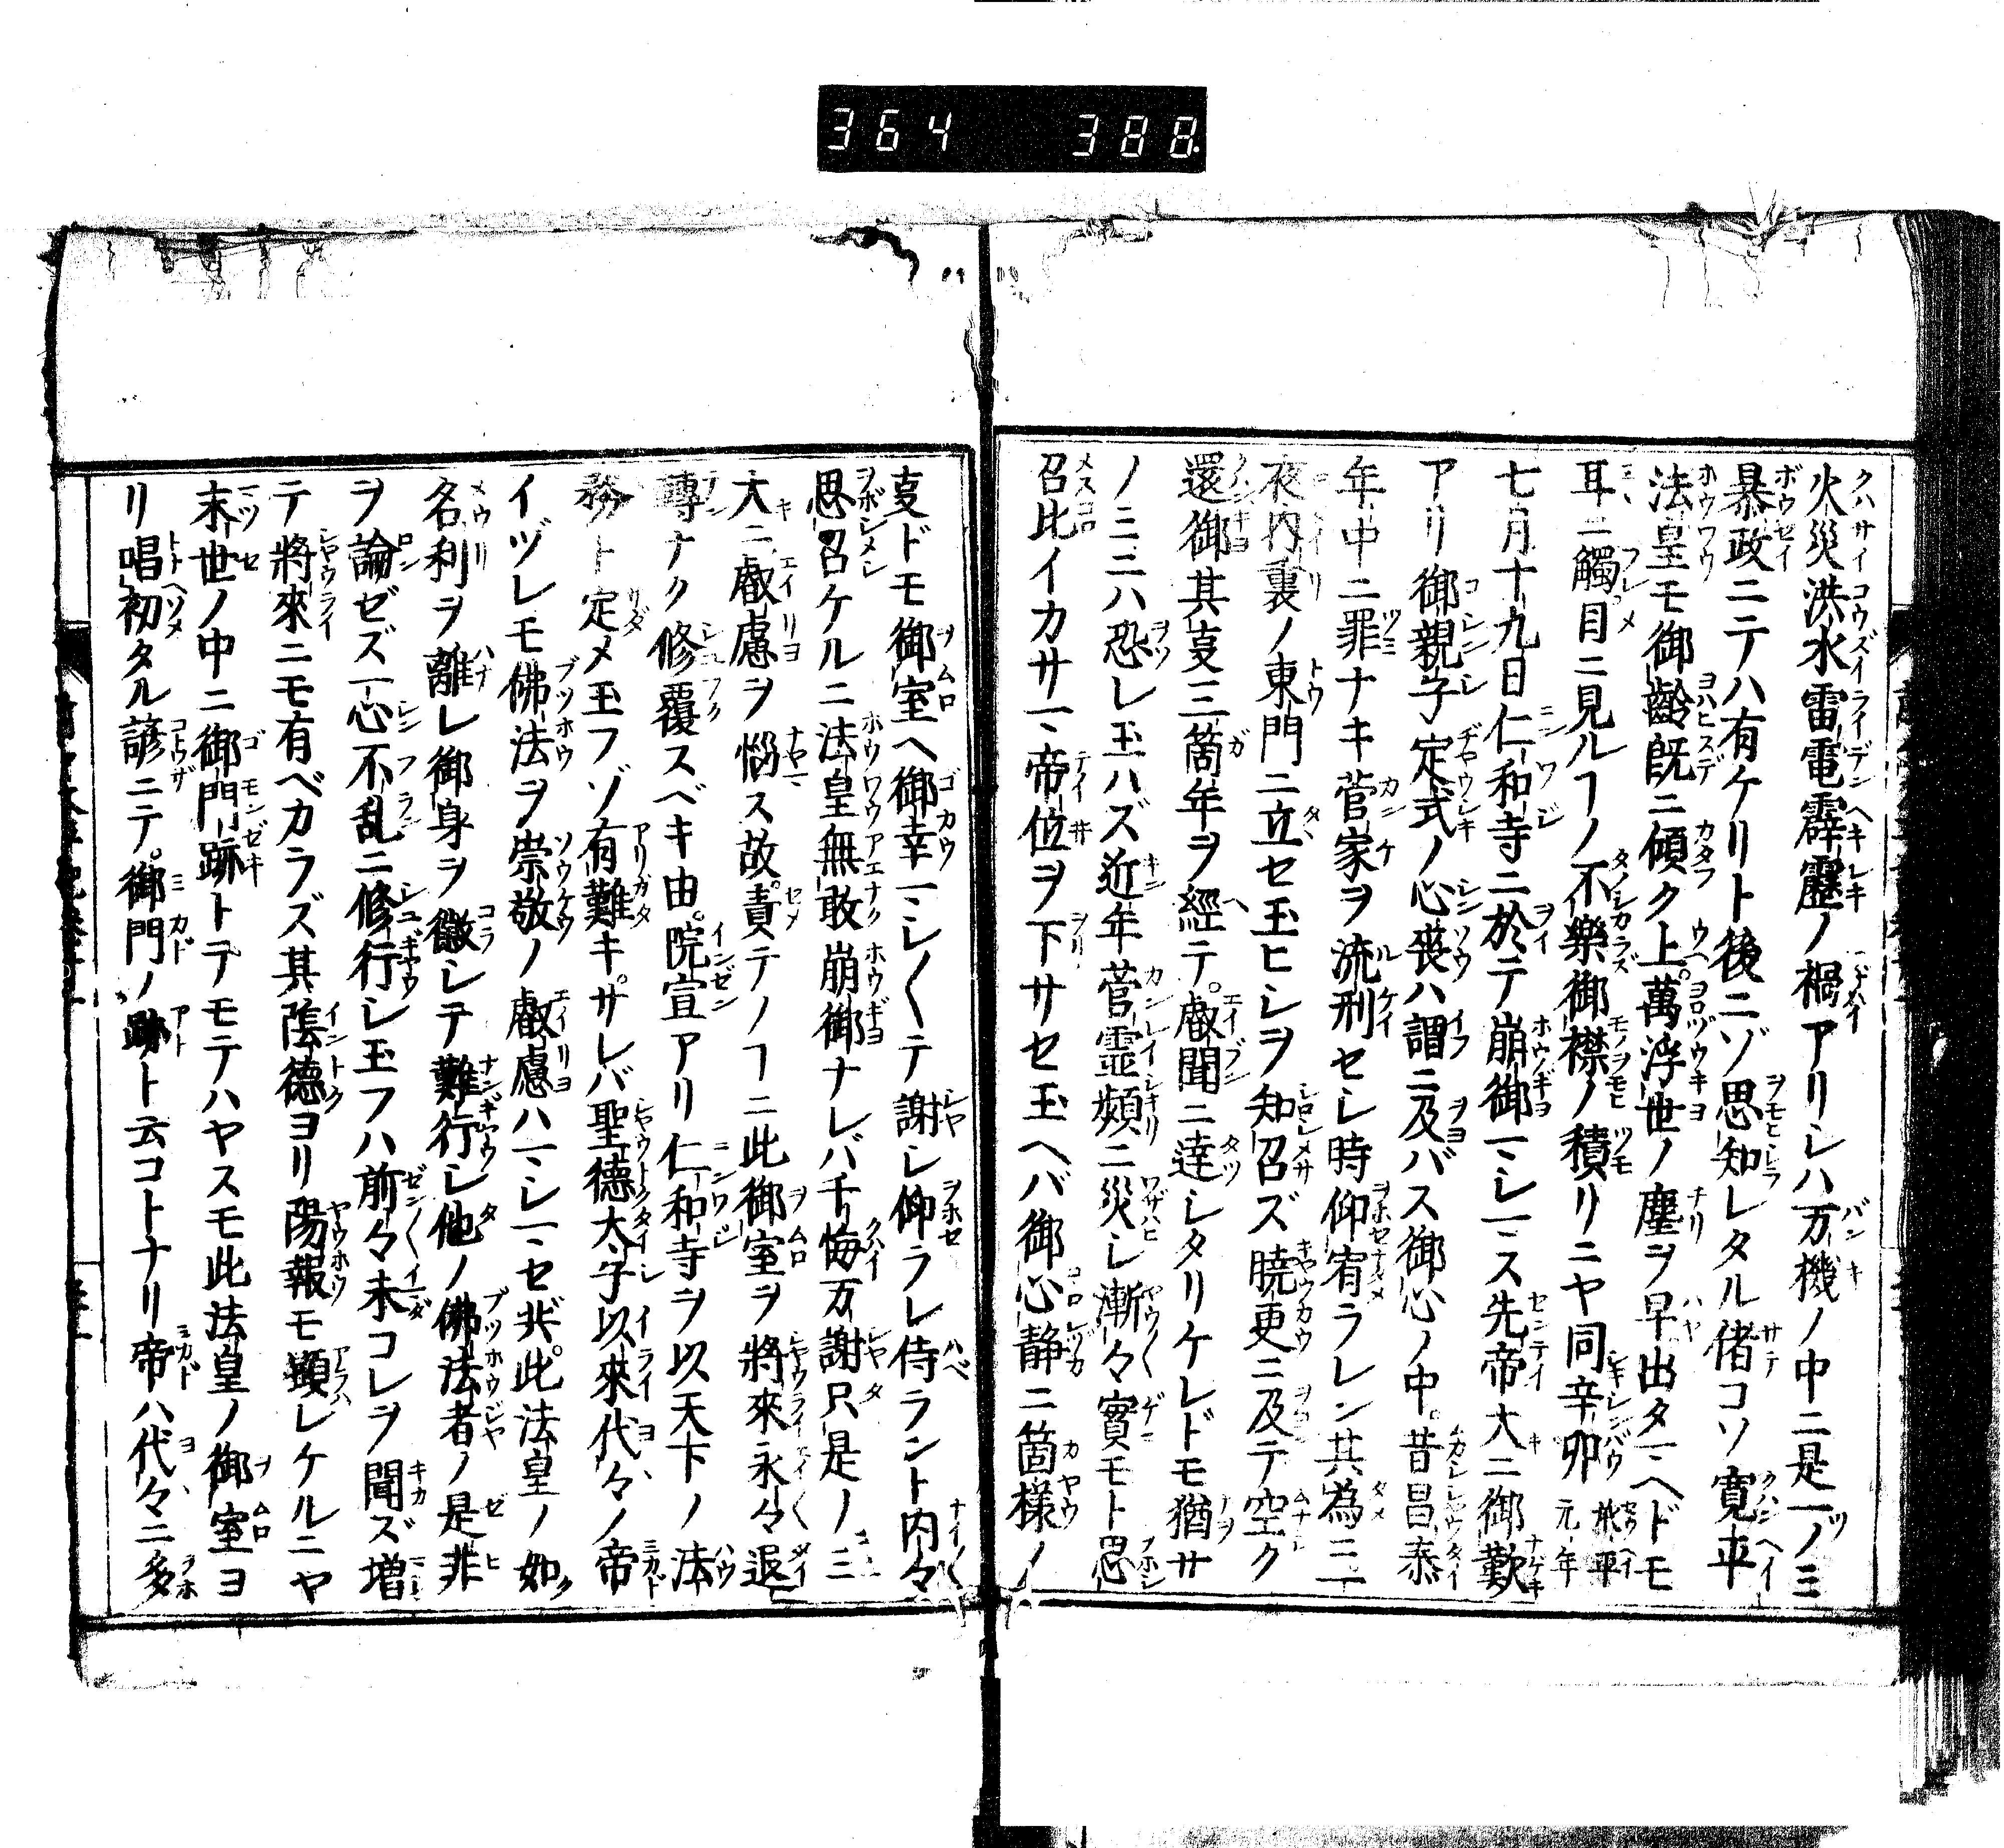 364 388
火災洪水雷電霹靂ノ禍アリシハ万機ノ中ニ是一ツノミ
暴政ニテハ有ケリト後ニゾ思知レタル偖コソ寛平
法皇モ御齢既ニ傾ク上萬浮世ノ塵ヲ早出タマヘドモ
耳ニ觸目ニ見ルヿノ不樂御襟ノ積リニヤ同辛卯 承平元年
七月十九日仁和寺ニ於テ崩御マシマス先帝大ニ御歎
アリ御親子定式ノ心喪ハ謂ニ及バス御心ノ中昔昌泰
年中ニ罪ナキ菅家ヲ流刑セシ時仰宥ラレン其為ニ
夜内裏ノ東門ニ立セ玉ヒシヲ知召ズ曉更ニ及テ空ク
還御其㕝三箇年ヲ經テ叡聞ニ達シタリケレドモ猶サ
ノミニハ恐レ玉ハズ近年菅霊頻ニ災シ漸々實モト思
召比イカサマ帝位ヲ下サセ玉ヘバ御心静ニ箇様ノ
㕝ドモ御室ヘ御幸マシ〱テ謝シ仰ラレ侍ラント内々
思召ケルニ法皇無敢崩御ナレバ千悔万謝只是ノミ
大ニ叡慮ヲ惱マス故責テノヿニ此御室ヲ將來永々退
轉ナク修覆スベキ由院宣アリ仁和寺ヲ以天下ノ法
務ト定メ玉フゾ有難キサレバ聖德太子以來代々ノ帝
イヅレモ佛法ヲ崇敬ノ叡慮ハマシマセ共此法皇ノ如ク
名利ヲ離レ御身ヲ徹シテ難行シ他ノ佛法者ノ是非
ヲ論ゼズ一心不乱ニ修行シ玉フハ前々未コレヲ聞ズ増
テ將來ニモ有ベカラズ其陰德ヨリ陽報モ顕レケルニヤ
末世ノ中ニ御門跡トテモテハヤスモ此法皇ノ御室ヨ
リ唱初タル諺ニテ御門ノ跡ト云コトナリ帝ハ代々ニ多